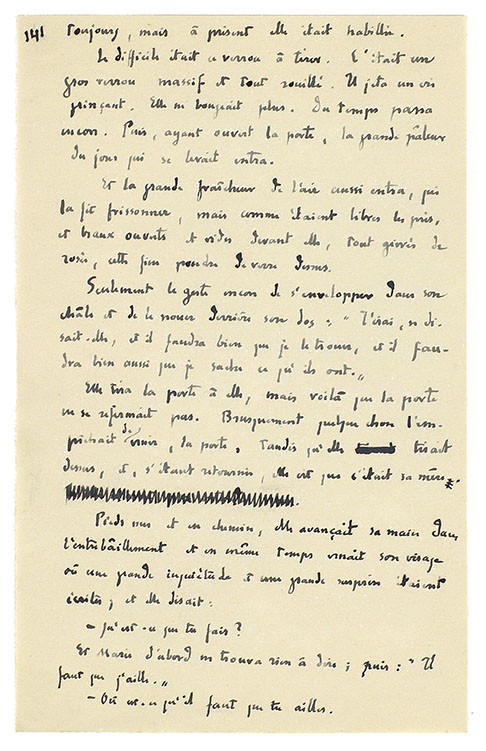 141 toujours, mais à présent elle était habillée.
Le difficile était ce verrou à tirer. C'était un
gros verrou massif et tout rouillé. Il jeta un cri
grinçant. Elle ne bougeait plus. Du temps passa
encore. Puis, ayant ouvert la porte, la grande pâleur
du jour qui se levait entra.
Et la grande fraîcheur de l'air aussi entra, qui
la fit frissonner, mais comme étaient libres les prés,
et beaux ouverts et vides devant elle, tout givrés de
rosée, cette fine poudre de verre dessus.
Seulement le geste encore de s'envelopper dans son
châle et de le nouer derrière son dos : "J'irai, se di-
sait-elle, et il faudra bien que je le trouve, et il fau-
dra bien aussi que je sache ce qu'ils ont."
Elle tira la porte à elle, mais voilà que la porte
ne se refermait pas. Brusquement quelque chose l'em-
pêchait de venir, la porte, tandis qu'elle tirait
dessus, et, s'étant retournée, elle vit que c'était sa mère.
Pieds nus et en chemise, elle avançait sa main dans
l'entrebâillement et en même temps venait son visage
où une grande inquiétude et une grande surprise étaient
écrites ; et elle disait :
– Qu'est-ce que tu fais ?
Et Marie d'abord ne trouva rien à dire ; puis : "Il
faut que j'aille."
– Où est-ce qu'il faut que tu ailles.